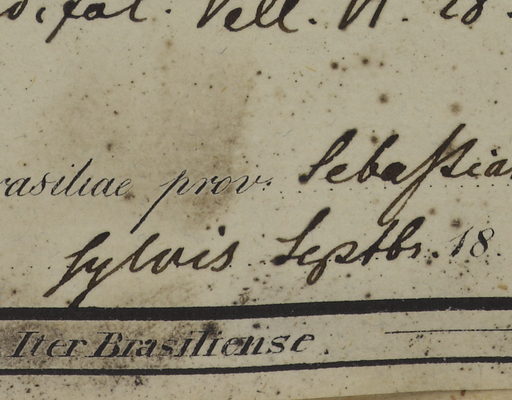 Vell. N. 18.
rasiliae prov. Sebastian
sylvis Septbr. 18
Iter Brasiliense.